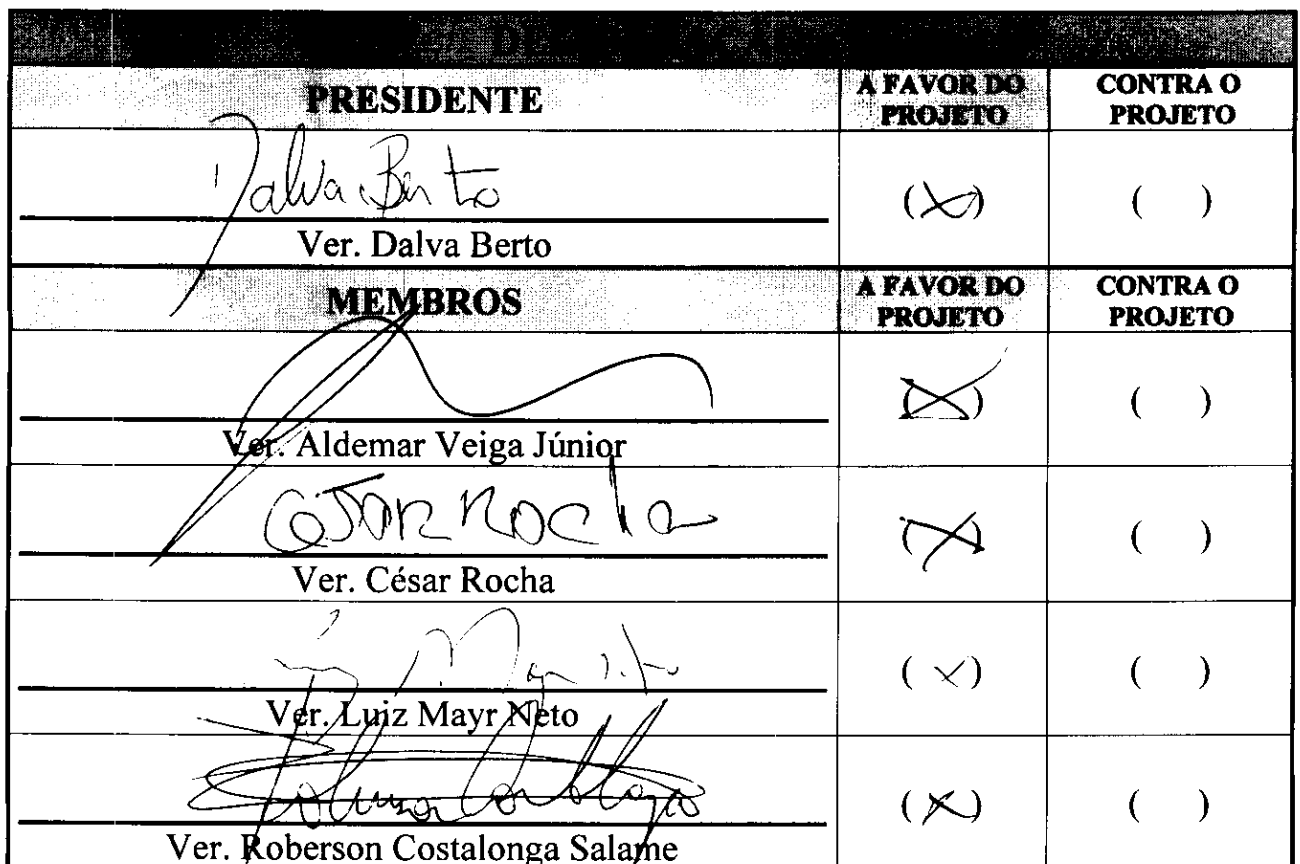 PRESIDENTE
A FAVOR DO PROJETO
CONTRA O PROJETO
Dalva Berto
(X)
( )
Ver. Dalva Berto
MEMBROS
A FAVOR DO PROJETO
CONTRA O PROJETO
(X)
( )
Ver. Aldemar Veiga Júnior
César Rocha
(X)
( )
Ver. César Rocha
(X)
( )
Ver. Luiz Mayr Neto
(X)
( )
Ver. Roberson Costalonga Salame